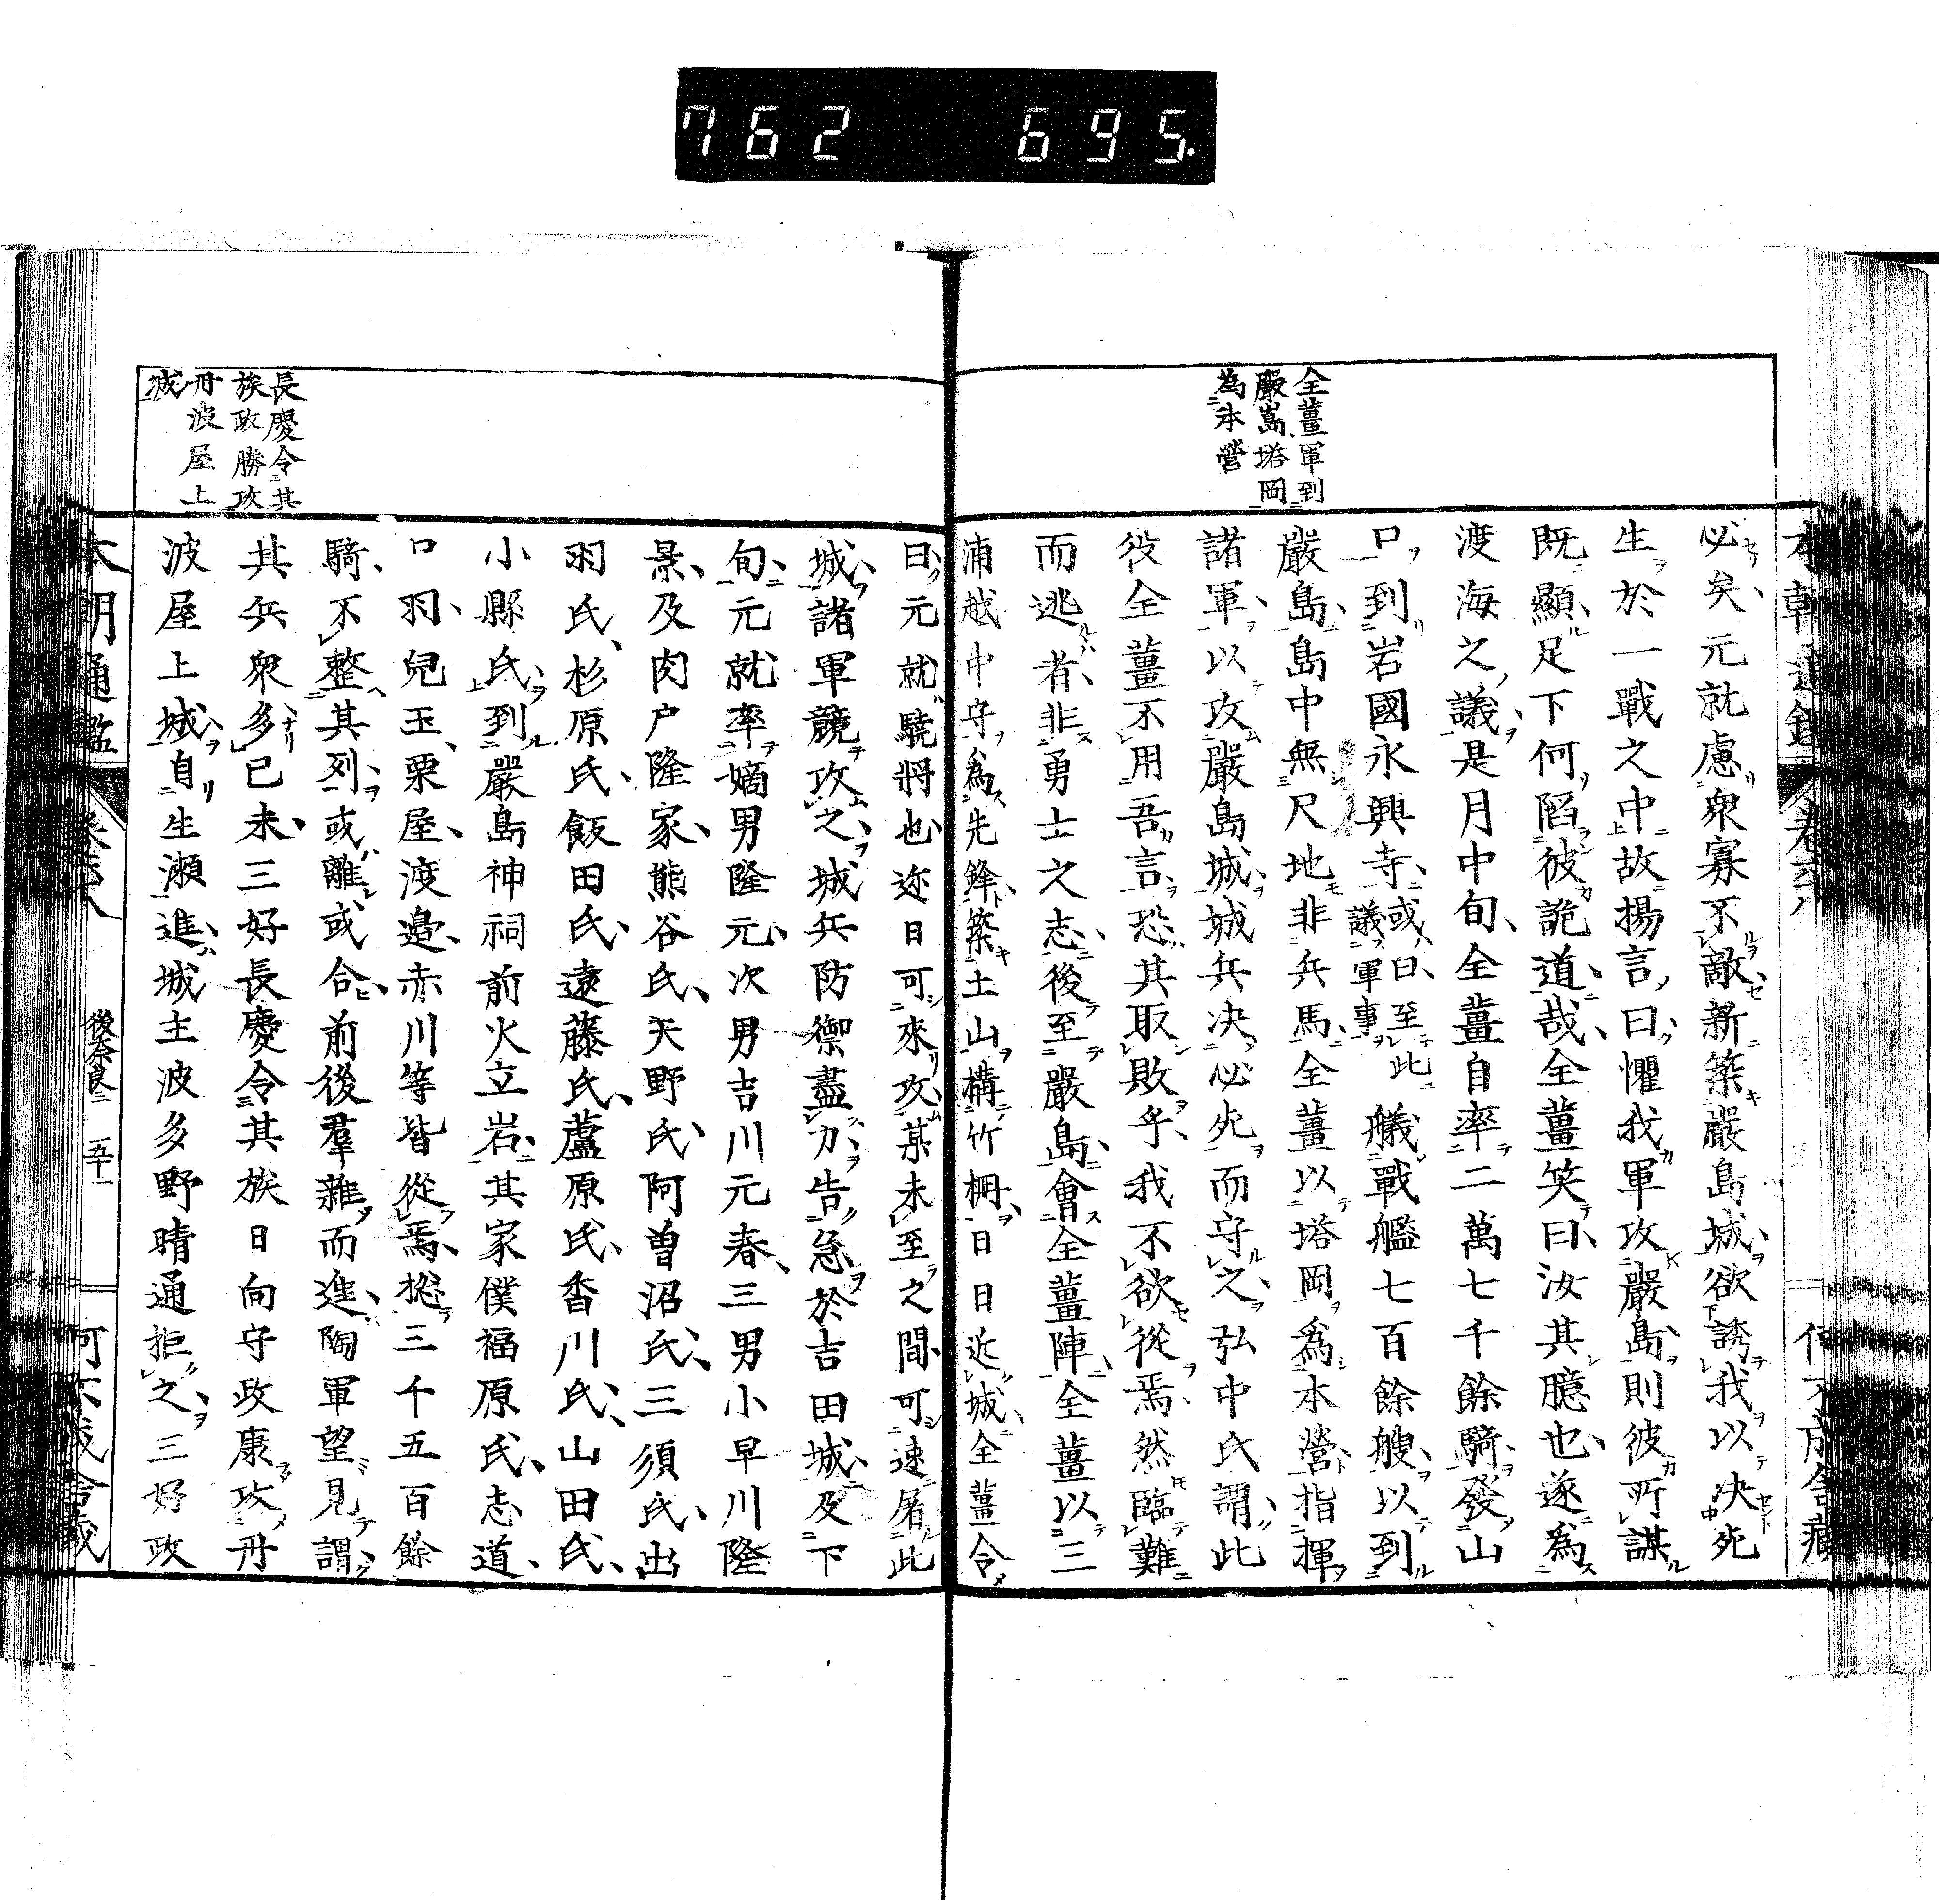 762 695.
全薑軍到
嚴島塔岡
為本營
必矣元就慮衆寡不敵新築嚴島城欲誘我以决死
生於一戰之中故揚言曰懼我軍攻嚴島則彼所謀
既顯足下何陷彼詭道哉全薑笑曰汝其臆也遂爲
渡海之議是月中旬全薑自率二萬七千餘騎發山
口到岩國永興寺或曰至此議軍事艤戰艦七百餘艘以到
嚴島島中無尺地非兵馬全薑以塔岡爲本營指揮
諸軍以攻嚴島城城兵决必死而守之弘中氏謂此
役全薑不用吾言恐其取敗乎我不欲從焉然臨難
而逃者非勇士之志後至嚴島會全薑陣全薑以三
浦越中守爲先鋒築土山構竹柵日日近城全薑令
長慶令其
族政勝攻
丹波屋上
城
曰元就驍將也迩日可來攻某未至之間可速屠此
城諸軍競攻之城兵防禦盡力告急於吉田城及下
旬元就率嫡男隆元次男吉川元春三男小早川隆
景及肉戸隆家熊谷氏天野氏阿曽沼氏三須氏出
羽氏杉原氏飯田氏遠藤氏蘆原氏香川氏山田氏
小縣氏到嚴島神祠前火立岩其家僕福原氏志道
口羽兒玉粟屋渡邉赤川等皆從焉捴三千五百餘
騎不整其列或離或合前後羣雜而進陶軍望見謂
其兵衆多已未三好長慶令其族日向守政康攻丹
波屋上城自生瀬進城主波多野晴通拒之三好政
本朝通鑑
後奈良二
五十一